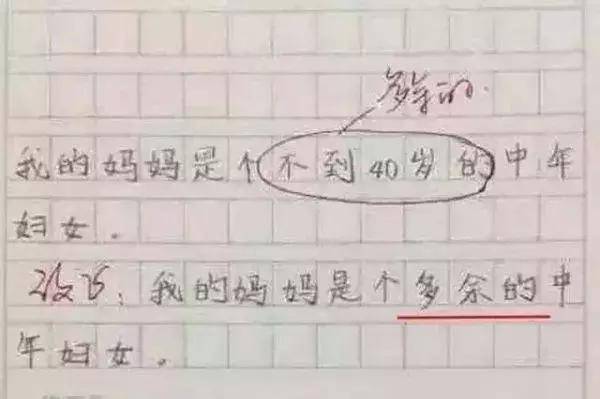 多余的
我的妈妈是个不到40岁的中年
妇女。
改巧：我的妈妈是个多余的中
年妇女。